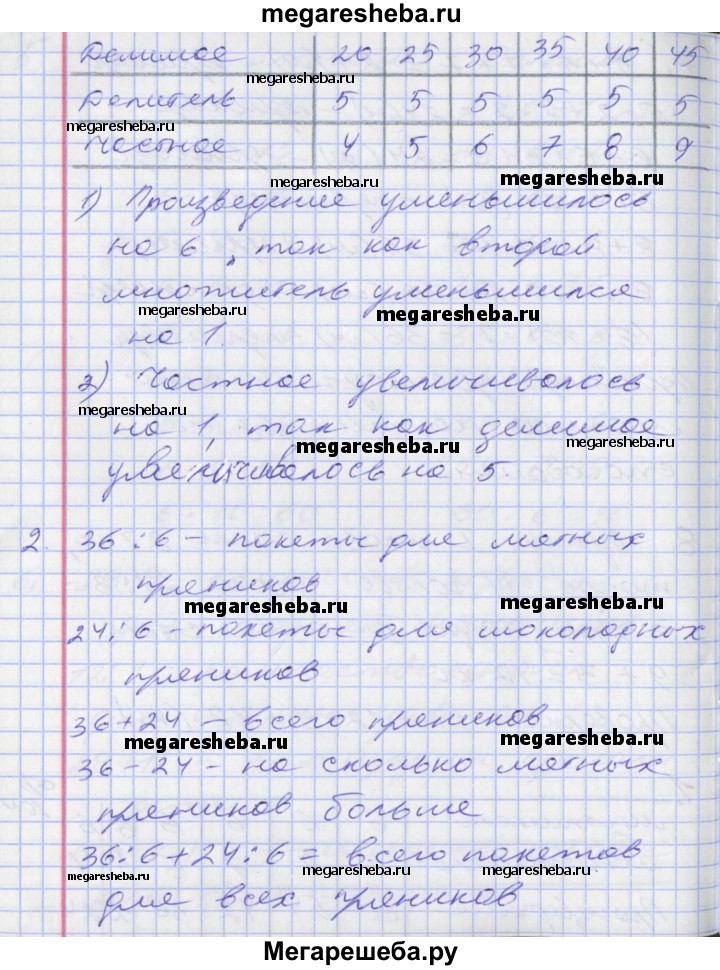 megaresheba.ru
Делимое 20 25 30 35 40 45
megaresheba.ru
Делитель 5 5 5 5 5 5
megaresheba.ru
Частное 4 5 6 7 8 9
megaresheba.ru megaresheba.ru
1) Произведение уменьшилось
на 6, так как второй
множитель уменьшился
megaresheba.ru megaresheba.ru
на 1.
2) Частное увеличивалось
megaresheba.ru
на 1, так как делимое
megaresheba.ru megaresheba.ru
увеличивалось на 5.
2. 36:6 – пакеты для мятных
megaresheba.ru
пряников
megaresheba.ru megaresheba.ru
24:6 – пакеты для шоколадных
пряников
36+24 – всего пряников
megaresheba.ru megaresheba.ru
36-24 – на сколько мятных
пряников больше
36:6+24:6= всего пакетов
megaresheba.ru megaresheba.ru megaresheba.ru
для всех пряников
Мегарешеба.ру